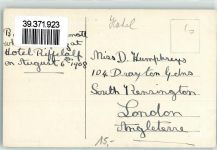 Hotel
39.371.923
B.
Hotel Riffelalp
on August 6th 1908
Miss D. Humphreys
104 Drayton Gdns
South Kensington
London
Angleterre
15,-